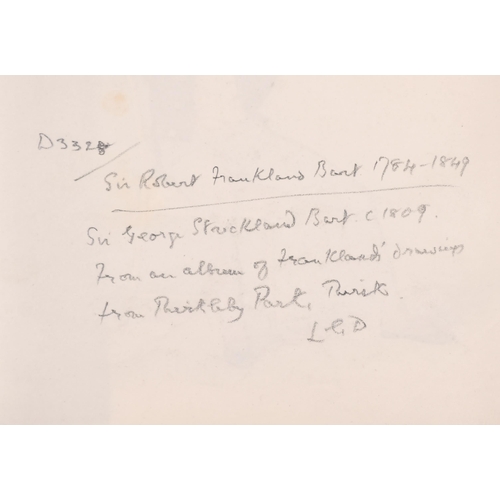 D3328
Sir Robert Frankland Bart 1784-1849
Sir George Strickland Bart. c 1809.
From an album of Franklands' drawings
from Thirkleby Park, Thirsk.
LGD